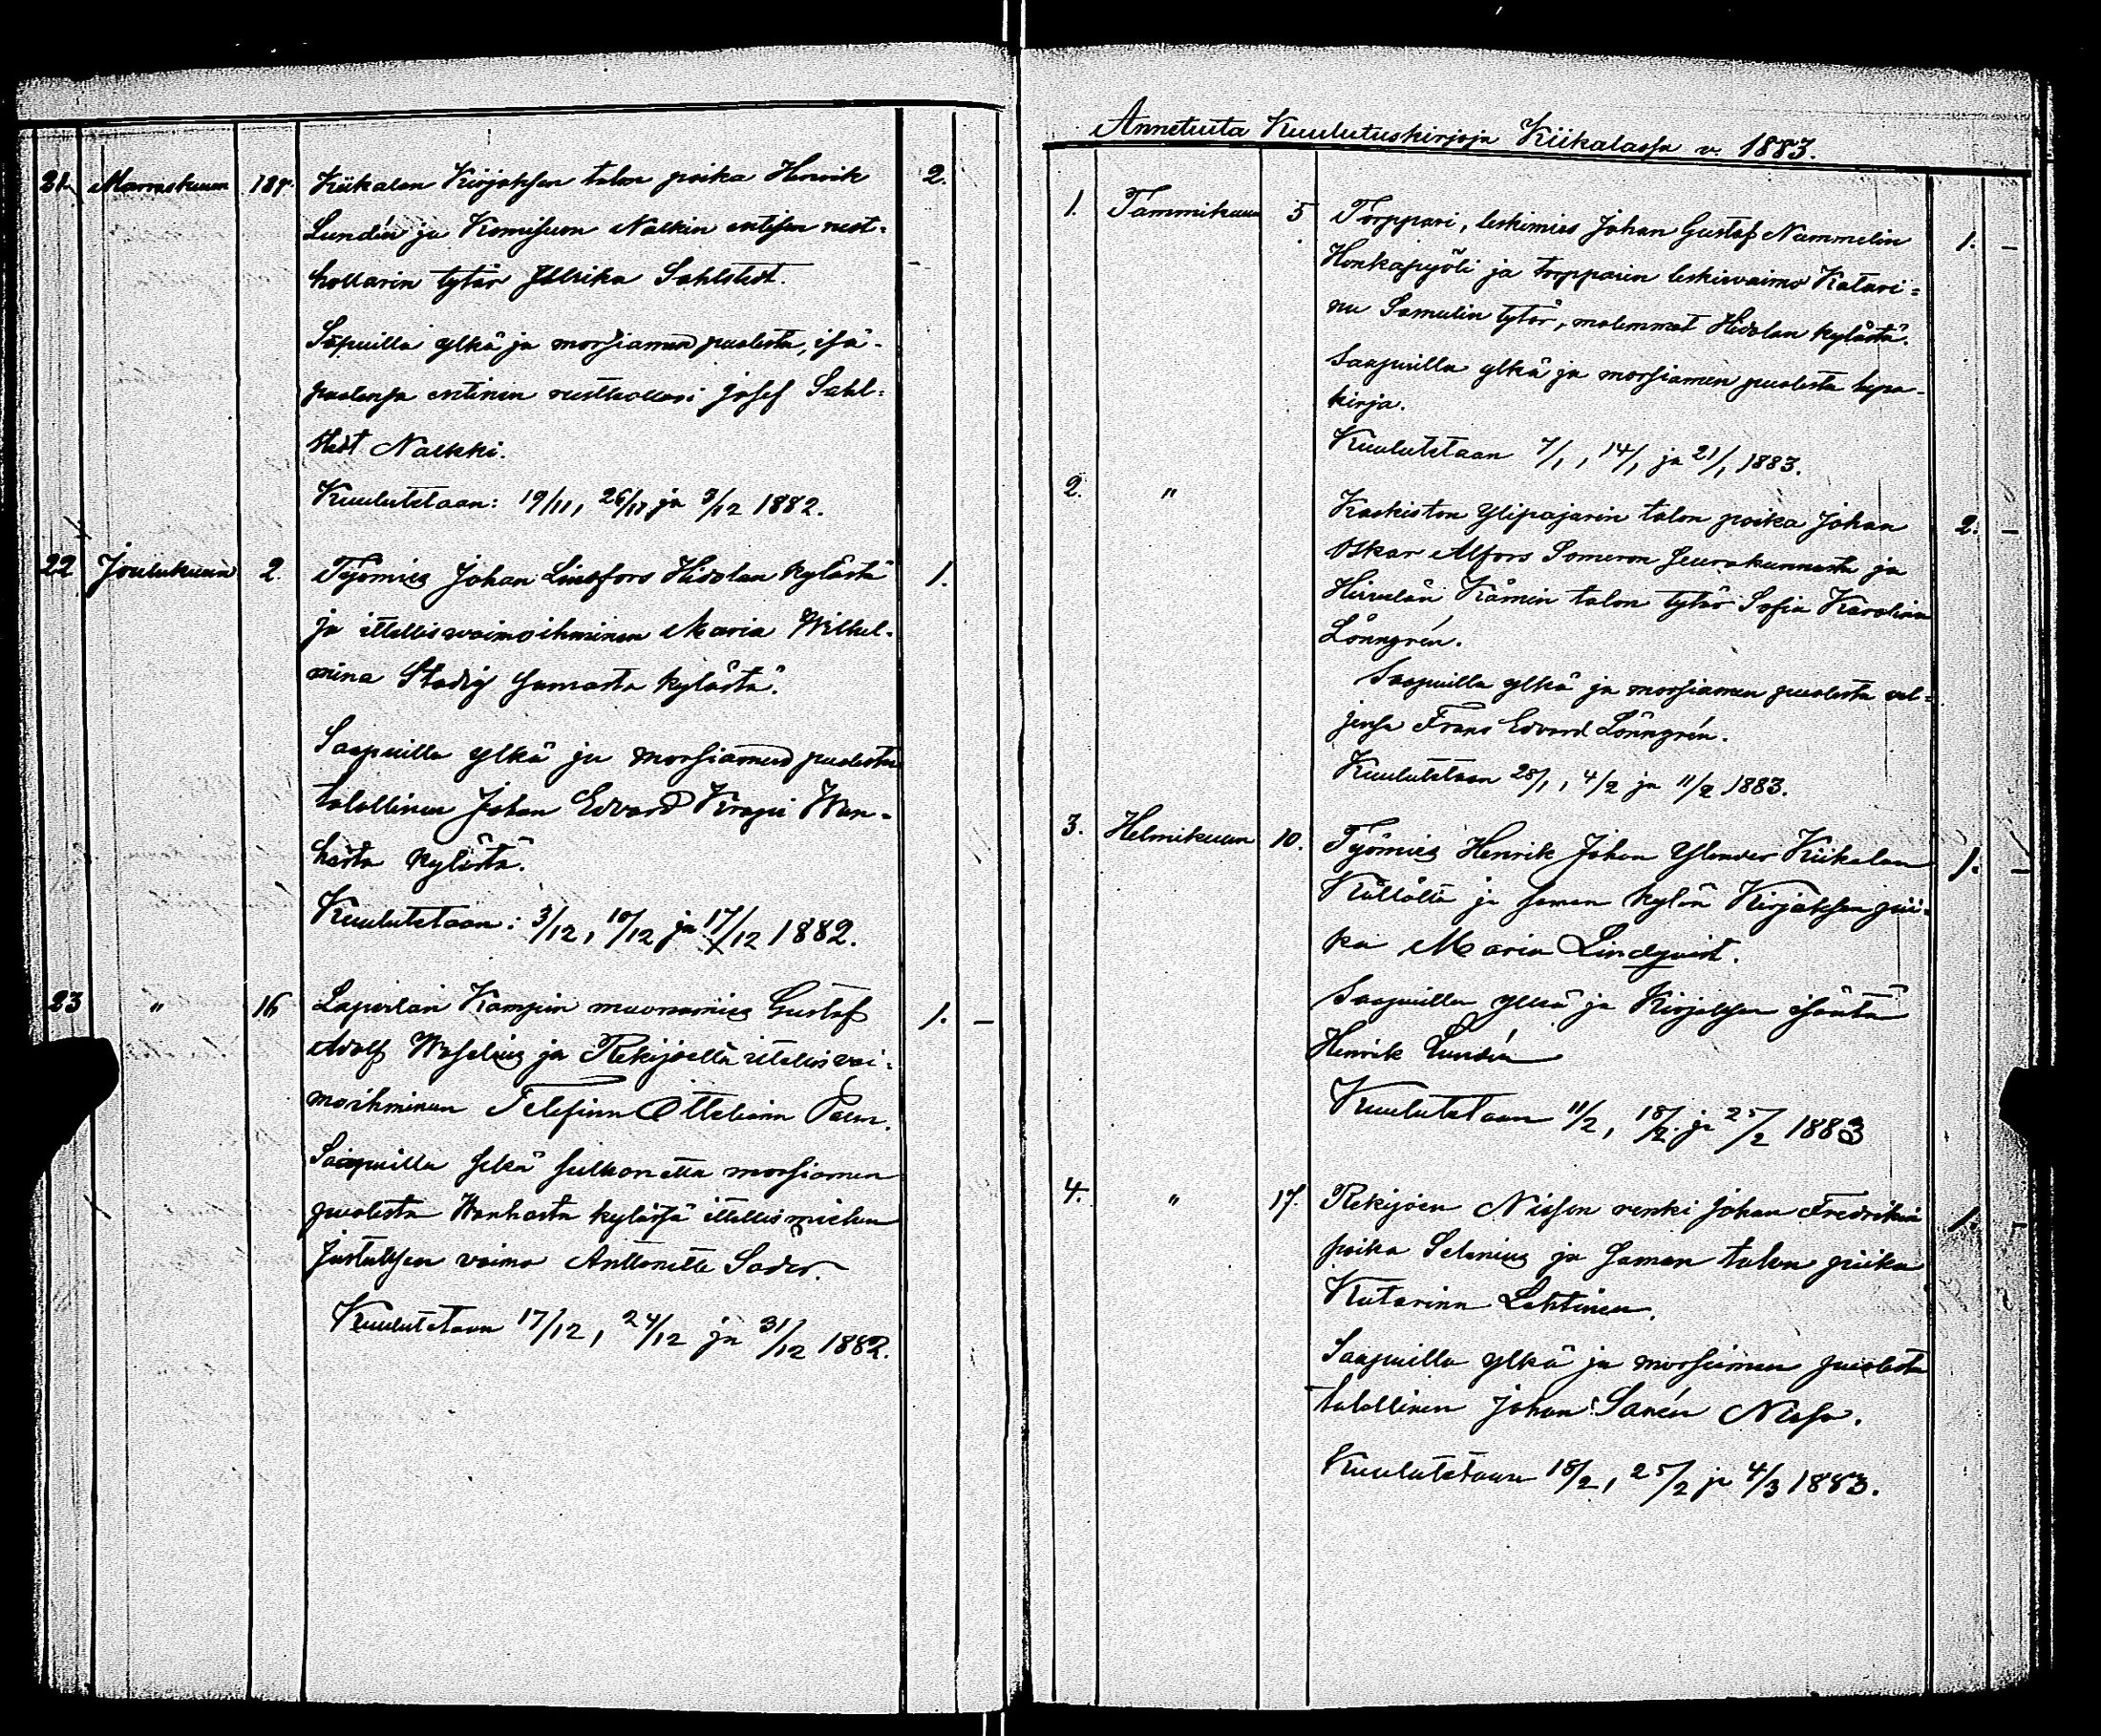 21. Marraskuun 18. Kiikalan Kirjaksen talon poika Henrik 2.
Lundén ja Komisuon Nalkin entisen rust-
hollarin tytär Ulrika Sahlstedt.
Sapuilla ylkä ja morsiamen puolesta, isä-
puolensa entinen rusthollari Josef Sahl-
stedt Nalkki.
Kuulutetaan: 19/11, 26/11 ja 3/12 1882.
22 Joulukuun 2. Työmies Johan Lindfors Hidolan kylästä 1.
ja itellisvaimoihminen Maria Wilhel-
mina Stadig samasta kylästä.
Saapuilla ylkä ja morsiamen puolesta
talollinen Johan Edvard Krapi Wan-
hasta kylästä.
Kuulutetaan: 3/12, 10/12 ja 17/12 1882.
23 " 16 Laperlan Kampin muonamies Gustaf 1. –
Adolf Waselius ja Rekijoelta itellisvai-
moihminen Ottelianna Palm.
Saapuilla sekä sulhon että morsiamen
puolesta Wanhasta kylästä itellismiehen
Justuksen vaimo Anttonetta Sader.
Kuulutetaan 17/12, 24/12 ja 31/12 1882.
Annetuita Kuulutuskirjoja Kiikalassa v. 1883.
1. Tammikuun 5 Torppari, leskimies Johan Gustaf Nummelin 1. –
Honkapyöli ja torpparin leskivaimo Katari-
na Samulin tytär, molemmat Hidolan kylästä.
Saapuilla ylkä ja morsiamen puolesta lupa-
kirja.
Kuulutetaan 7/1, 14/1 ja 21/1 1883.
2. " Kaskiston Ylipajarin talon poika Johan 2. –
Oskar Alfors Someron seurakunnasta ja
Hirvelän Kämin talon tytär Sofia Karolina
Lönngrén.
Saapuilla ylkä ja morsiamen puolesta vel-
jensä Frans Edvard Lönngrén.
Kuulutetaan 28/1, 4/2 ja 11/2 1883.
3. Helmikuun 10. Työmies Henrik Johan Ylander Kiikalan 1. –
Källältä ja saman kylän Kirjaksen pii-
ka Maria Lindqvist.
Saapuilla ylkä ja Kirjaksen isäntä
Henrik Lundén
Kuulutetaan 11/2, 18/2 ja 25/2 1883
4. " 17. Rekijoen Nissen renki Johan Fredrikin 1. –
poika Selenius ja saman talon piika
Katarina Lehtinen.
Saapuilla ylkä ja morsiamen puolesta
talollinen Johan Sanén Nissa.
Kuulutetaan 18/2, 25/2 ja 4/3 1883.